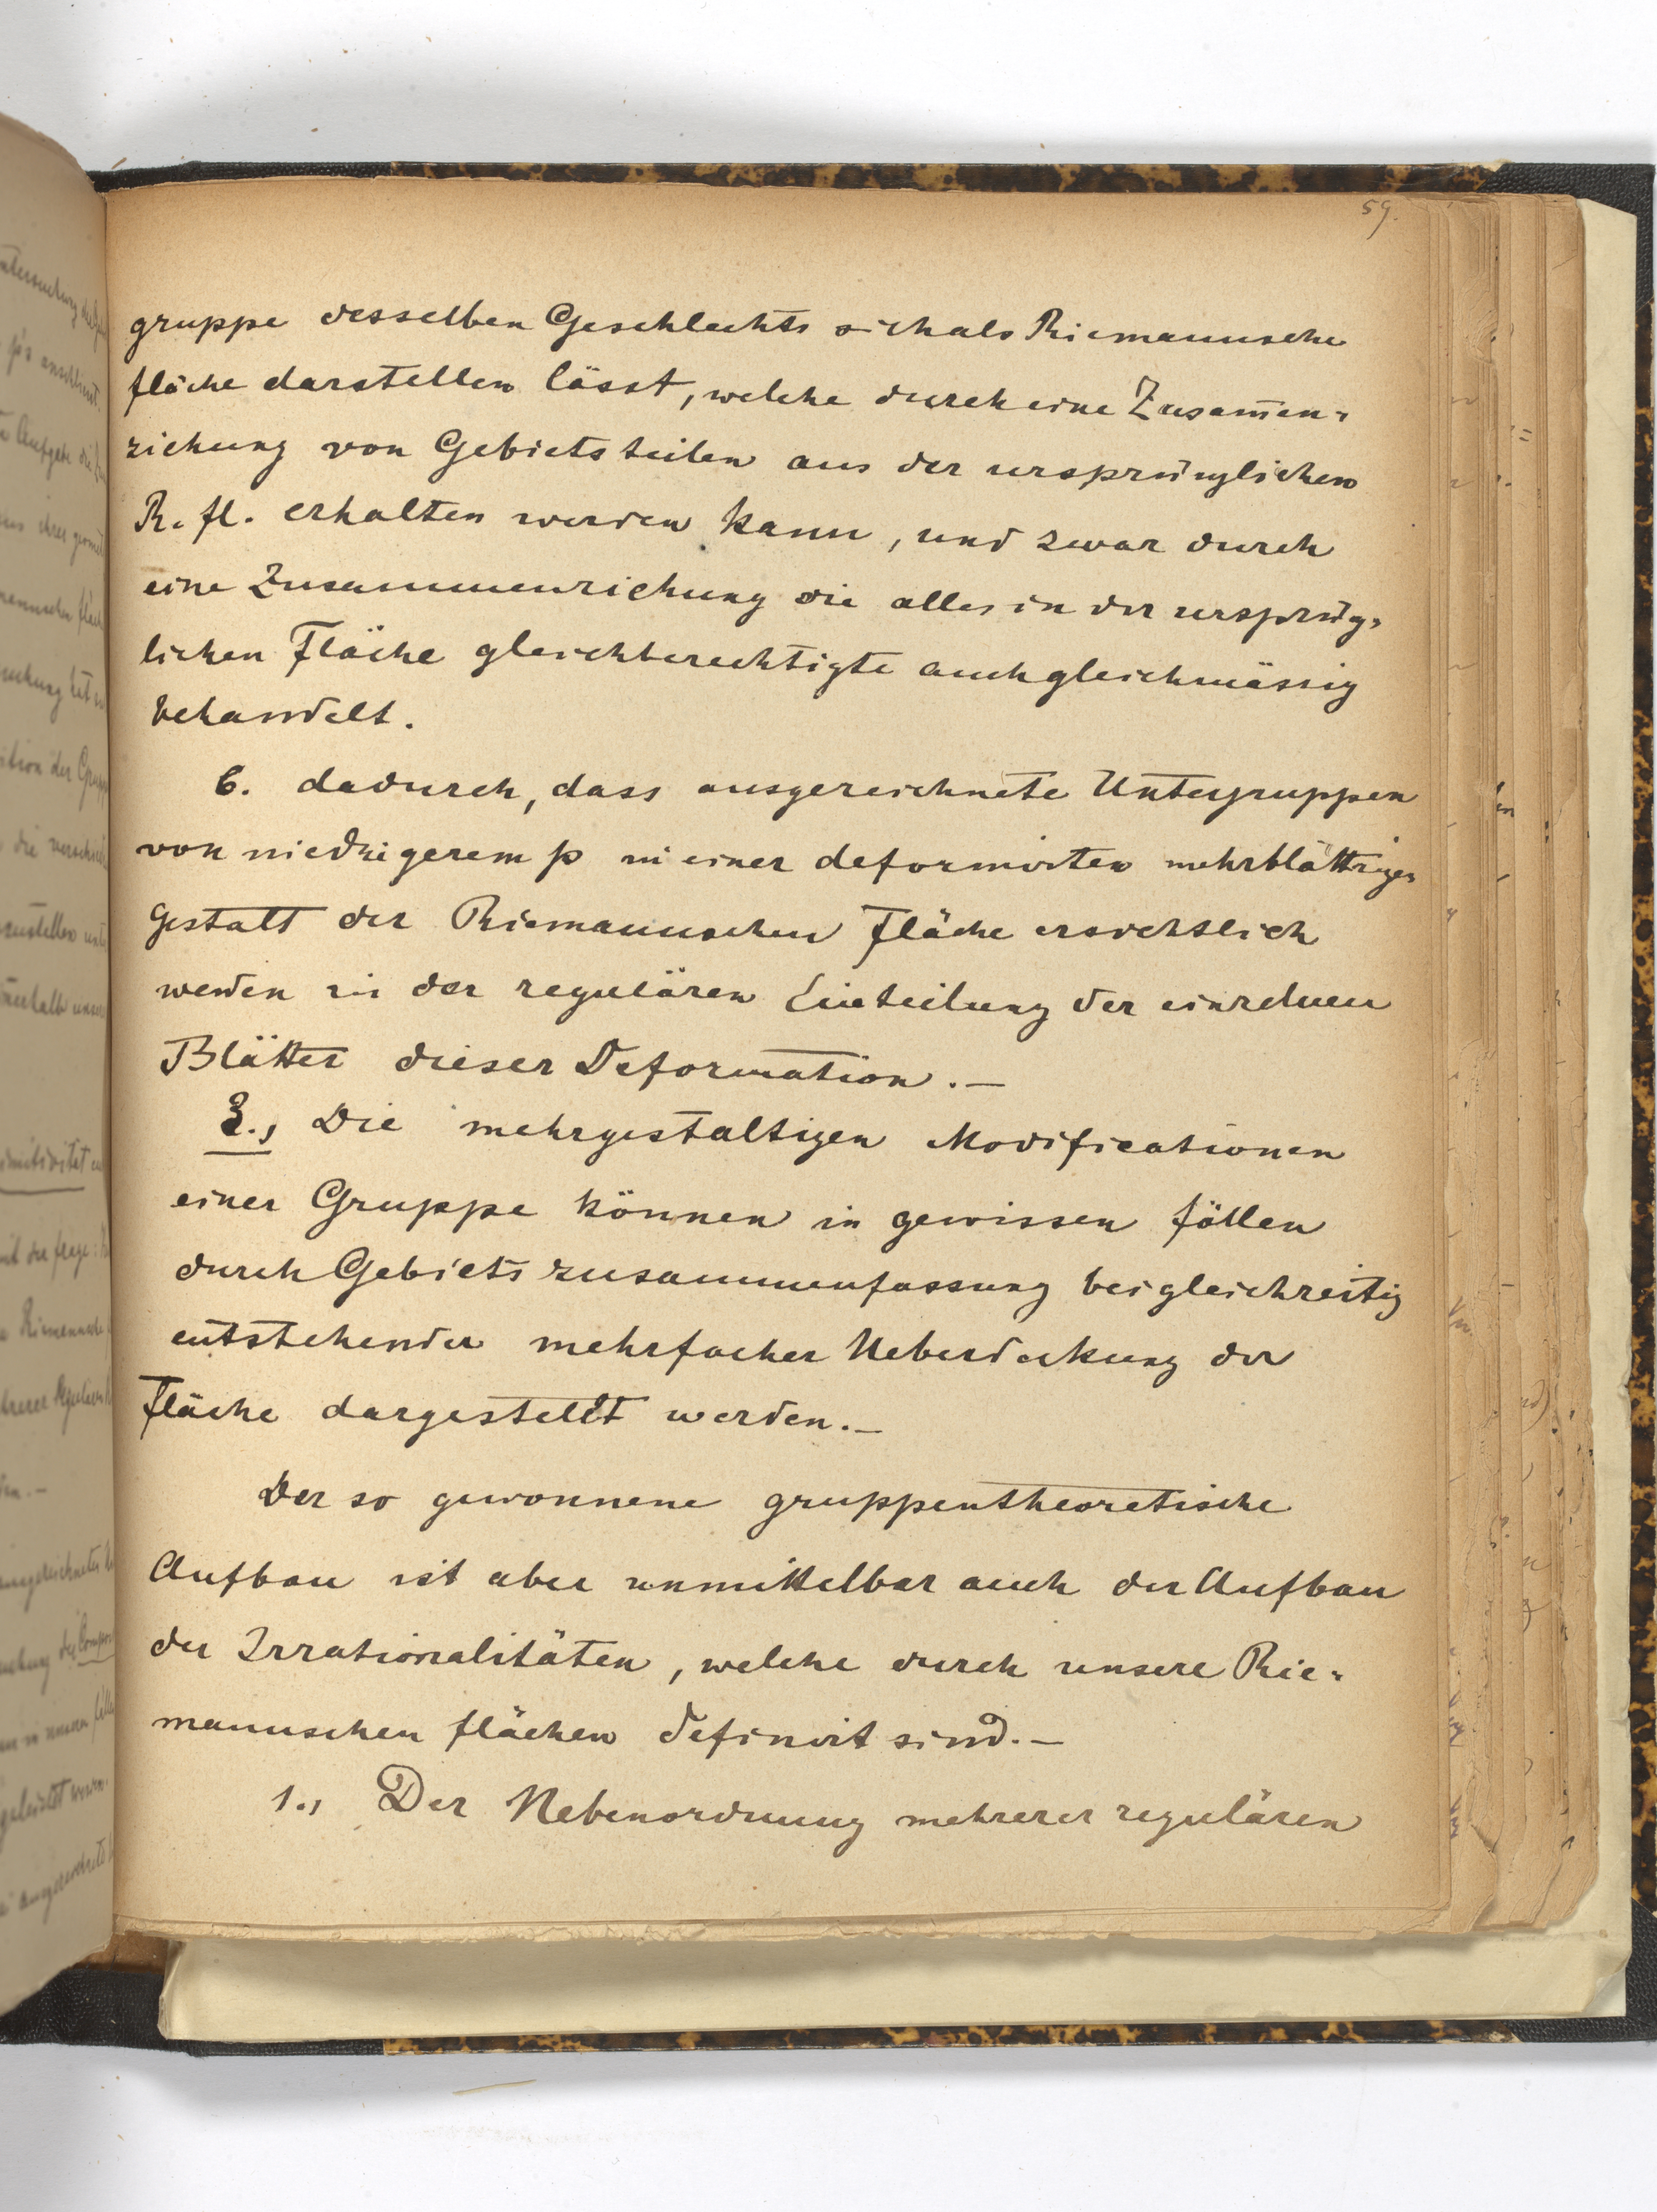 59.
gruppe desselben Geschlechts sich als Riemannsche
fläche darstellen lässt, welche durch eine Zusam̅en=
ziehung von Gebietsteilen aus der ursprünglichen
R. fl. erhalten werden kann, und zwar durch
eine Zusammenziehung die alles in der ursprüng=
lichen Fläche gleichberechtigte auch gleichmässig
behandelt.
6. dadurch, dass ausgezeichnete Untergruppen
von niedrigerem p in einer deformirten mehrblättrigen
Gestalt der Riemannschen Fläche ersichtlich
werden in der regulären Einteilung der einzelnen
Blätter dieser Deformation.—
3., Die mehrgestaltigen Modificationen
einer Gruppe können in gewissen fällen
durch Gebietszusammenfassung bei gleichzeitig
entstehender mehrfacher Ueberdeckung der
Fläche dargestellt werden.—
Der so gewonnene gruppentheoretische
Aufbau ist aber unmittelbar auch der Aufbau
der Irrationalitäten, welche durch unsere Rie=
mannschen flächen definirt sind.—
1., Der Nebenordnung mehrerer regulären